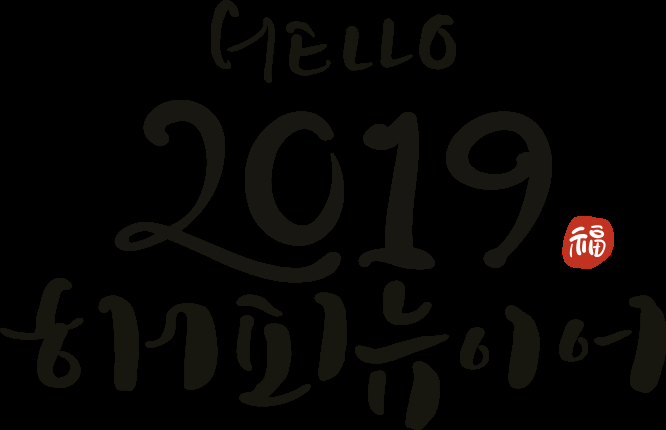 HELLO
2019
福
해피뉴이어